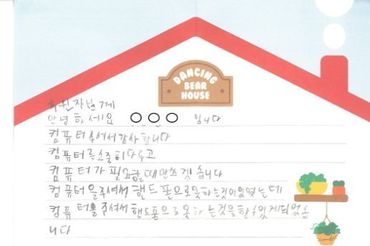 DANCING
BEAR
HOUSE
후원자님께
안녕하세요 ○○○ 입니다
컴퓨터 주셔서 감사합니다
컴퓨터는 소중히 다루고
컴퓨터가 필요할 때만 쓰겟습니다
컴퓨터을 주셔서 핸드폰으로 못하는 것이 있었는데
컴퓨터를 주셔서 핸드폰으로 못하는 것을 할수 있게 되었습
니다